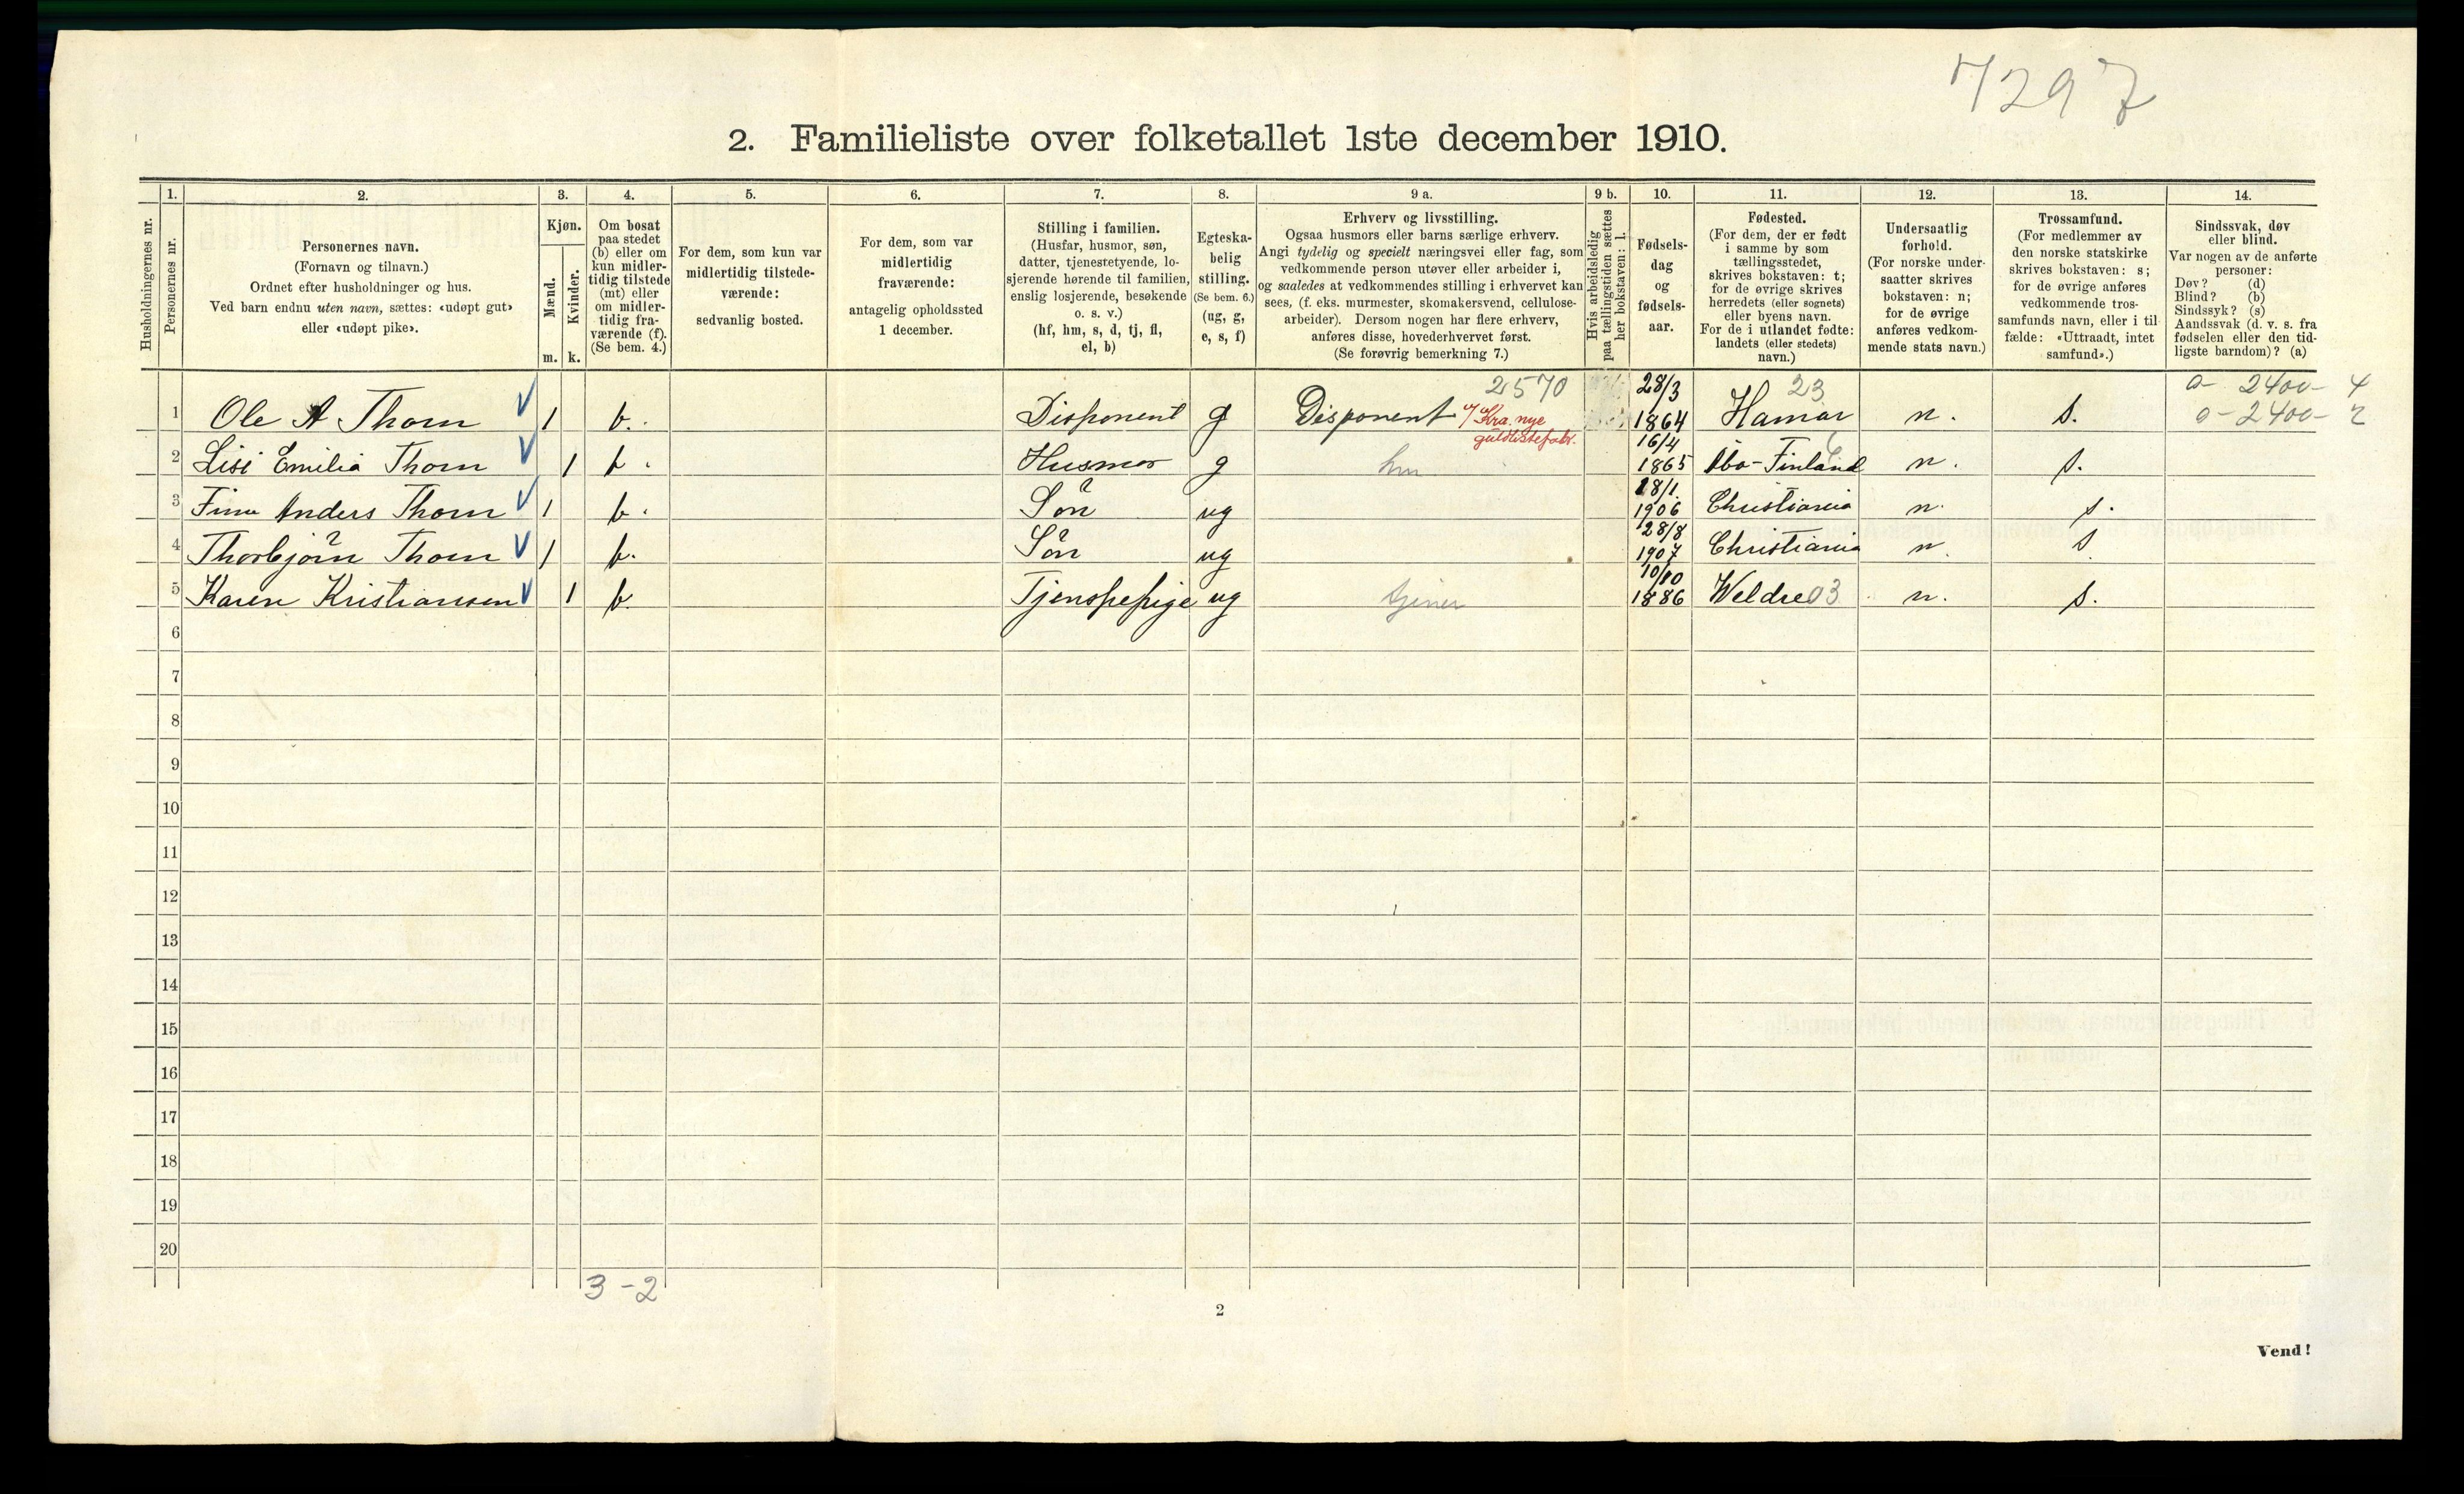 7297
2. Familieliste over folketallet 1ste december 1910.
Husholdningernes nr.
1.
Personernes nr.
2.
Personernes navn.
(Fornavn og tilnavn.)
Ordnet efter husholdninger og hus.
Ved barn endnu uten navn, sættes: «udøpt gut»
eller «udøpt pike».
3.
Kjøn.
Mænd.
Kvinder.
m. k.
4.
Om bosat
paa stedet
(b) eller om
kun midler-
tidig tilstede
(mt) eller
om midler-
tidig fra-
værende (f).
(Se bem. 4.)
5.
For dem, som kun var
midlertidig tilstede-
værende:
sedvanlig bosted.
6.
For dem, som var
midlertidig
fraværende:
antagelig opholdssted
1 december.
7.
Stilling i familien.
(Husfar, husmor, søn,
datter, tjenestetyende, lo-
sjerende hørende til familien,
enslig losjerende, besøkende
o. s. v.)
(hf, hm, s, d, tj, fl,
el, b)
8.
Egteska-
belig
stilling.
(Se bem. 6.)
(ug, g,
e, s, f)
9 a.
Erhverv og livsstilling.
Ogsaa husmors eller barns særlige erhverv.
Angi tydelig og specielt næringsvei eller fag, som
vedkommende person utøver eller arbeider i,
og saaledes at vedkommendes stilling i erhvervet kan
sees, (f. eks. murmester, skomakersvend, cellulose-
arbeider). Dersom nogen har flere erhverv,
anføres disse, hovederhvervet først.
(Se forøvrig bemerkning 7.)
9 b.
Hvis arbeidsledig
paa tællingstiden sættes
her bokstaven: l.
10.
Fødsels-
dag
og
fødsels-
aar.
11.
Fødested.
(For dem, der er født
i samme by som
tællingsstedet,
skrives bokstaven: t;
for de øvrige skrives
herredets (eller sognets)
eller byens navn.
For de i utlandet fødte:
landets (eller stedets)
navn.)
12.
Undersaatlig
forhold.
(For norske under-
saatter skrives
bokstaven: n;
for de øvrige
anføres vedkom-
mende stats navn.)
13.
Trossamfund.
(For medlemmer av
den norske statskirke
skrives bokstaven: s;
for de øvrige anføres
vedkommende tros-
samfunds navn, eller i til-
fælde: «Uttraadt, intet
samfund».)
14.
Sindssvak, døv
eller blind.
Var nogen av de anførte
personer:
Døv? (d)
Blind? (b)
Sindssyk? (s)
Aandssvak (d. v. s. fra
fødselen eller den tid-
ligste barndom)? (a)
2570 28/3 23 o- 2400- 4
1 Ole A Thorn 1 b. Disponent g Disponent v/ Kra. nye guldlistefabr. 1864 Hamar n. s. o- 2400- 2
2 Lisi Emilia Thorn 1 b. Husmor g hm 16/4 1865 Åbo-Finland 6 n. s.
3 Finn Anders Thorn 1 b. Sön ug 28/1. 1906 Christiania n. s.
4 Thorbjörn Thorn 1 b. Sön ug 28/8 1907 Christiania n. s
5 Karen Kristiansen 1 b. Tjenstepige ug tjener 10/10 1886 Weldre 03 n. s.
6
7
8
9
10
11
12
13
14
15
16
17
18
19
20
3-2
2
Vend!